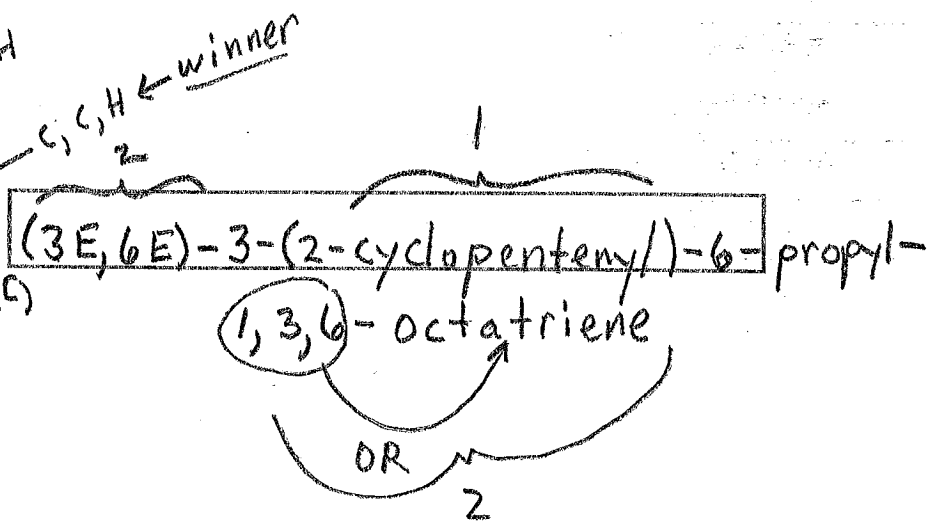 H
C, C, H ← winner
2
1
(3E,6E)-3-(2-cyclopentenyl)-6-propyl-
1,3,6-octatriene
OR
2